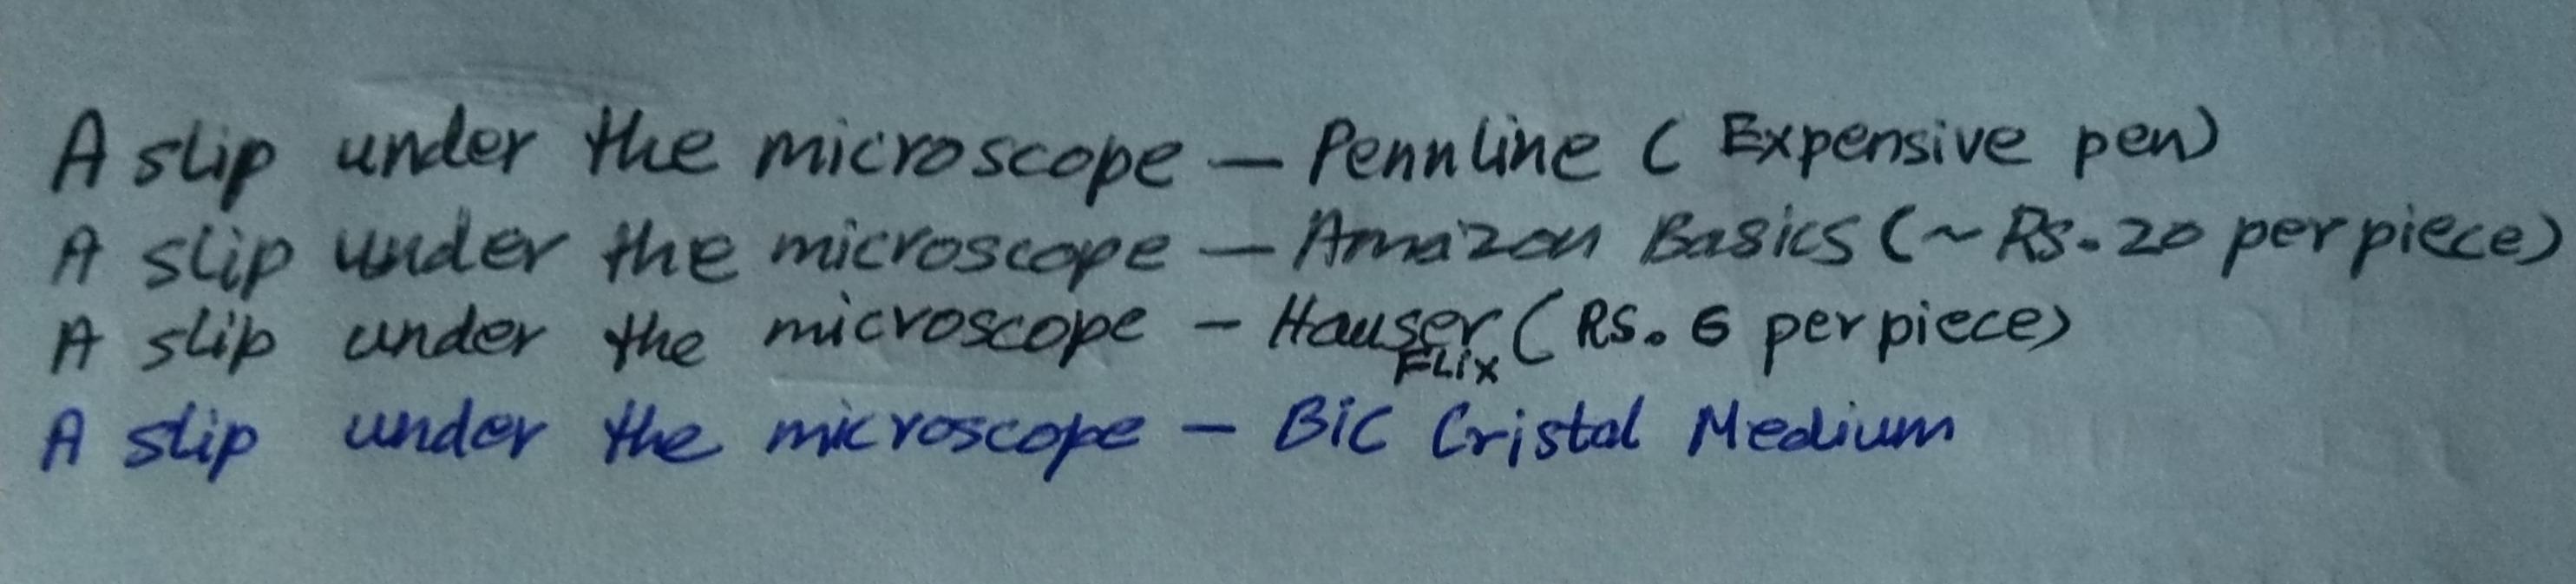 A slip under the microscope — Pennline ( Expensive pen)
A slip under the microscope — Amazon Basics (~ Rs. 20 per piece)
A slip under the microscope - Hauser ( Rs. 6 per piece)
FLix
A slip under the microscope - BiC Cristal Medium